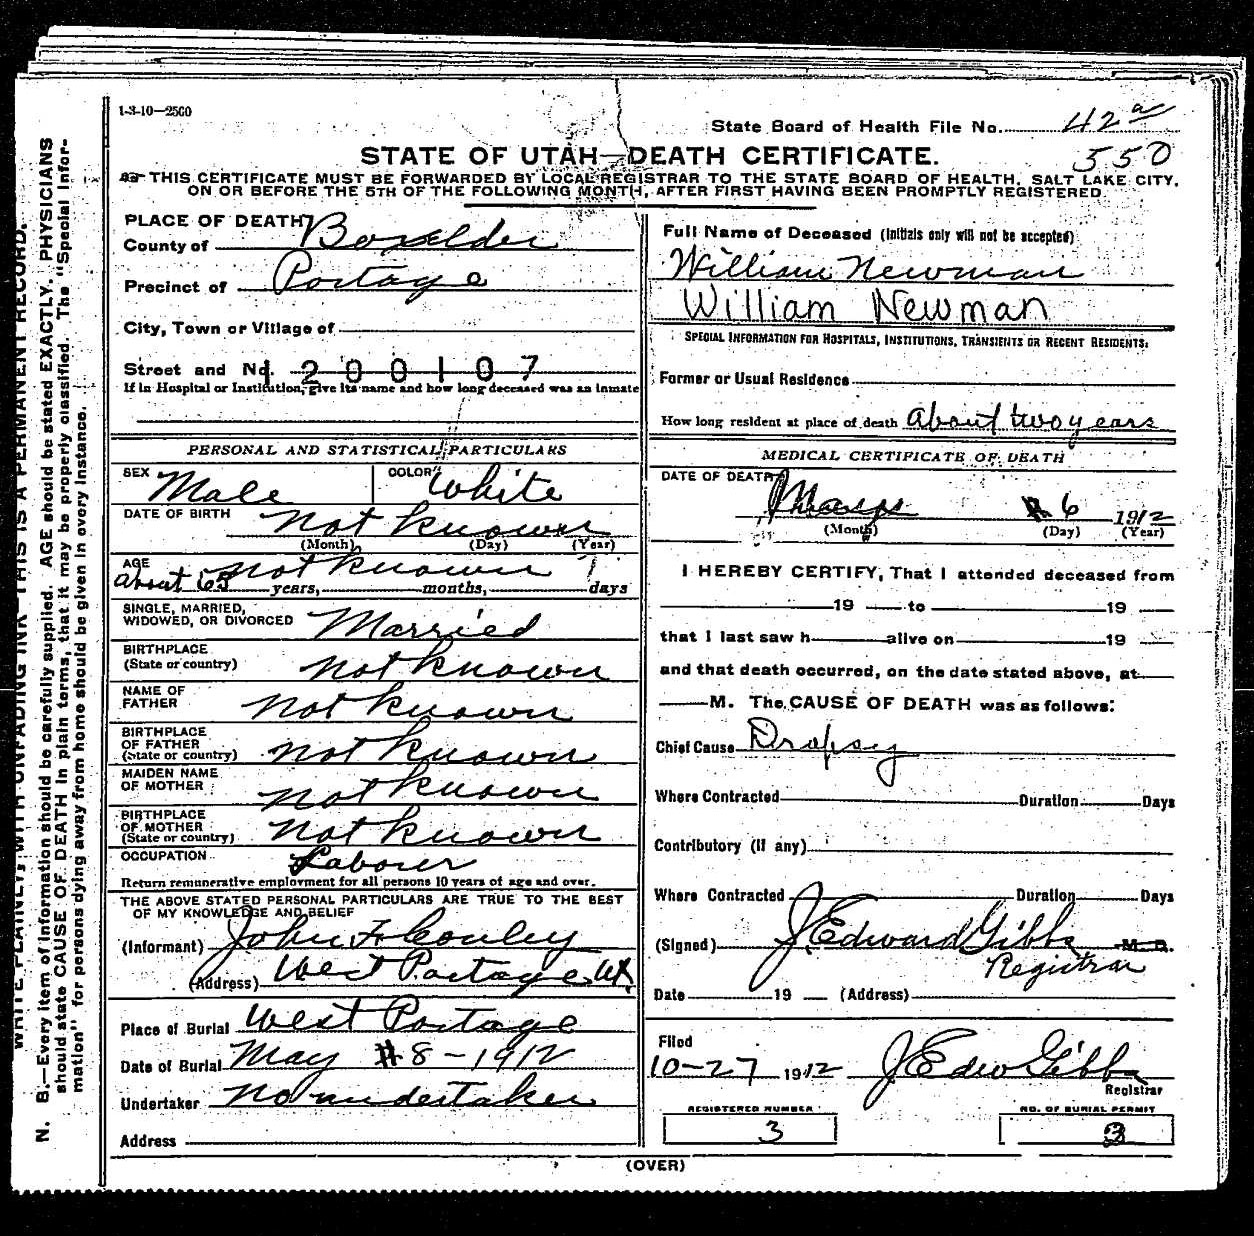 1-3-10—2500
State Board of Health File No. 42 a
550
STATE OF UTAH—DEATH CERTIFICATE.
THIS CERTIFICATE MUST BE FORWARDED BY LOCAL REGISTRAR TO THE STATE BOARD OF HEALTH, SALT LAKE CITY,
ON OR BEFORE THE 5TH OF THE FOLLOWING MONTH, AFTER FIRST HAVING BEEN PROMPTLY REGISTERED.
PLACE OF DEATH
County of Boxelder
Precinct of Portage
City, Town or Village of
Street and No. 1200107
If in Hospital or Institution, give its name and how long deceased was an inmate
PERSONAL AND STATISTICAL PARTICULARS
SEX Male
COLOR White
DATE OF BIRTH not known
(Month) (Day) (Year)
AGE not known
about 65 years, months, days
SINGLE, MARRIED,
WIDOWED, OR DIVORCED Married
BIRTHPLACE
(State or country) not known
NAME OF
FATHER not known
BIRTHPLACE
OF FATHER
(State or country) not known
MAIDEN NAME
OF MOTHER not known
BIRTHPLACE
OF MOTHER
(State or country) not known
OCCUPATION Laborer
Return remunerative employment for all persons 10 years of age and over.
THE ABOVE STATED PERSONAL PARTICULARS ARE TRUE TO THE BEST
OF MY KNOWLEDGE AND BELIEF
(Informant) John F Conley
(Address) West Portage Ut.
Place of Burial West Portage
Date of Burial May 8-1912
Undertaker No undertaker
Address
Full Name of Deceased (Initials only will not be accepted)
William Newman
William Newman
SPECIAL INFORMATION FOR HOSPITALS, INSTITUTIONS, TRANSIENTS OR RECENT RESIDENTS:
Former or Usual Residence
How long resident at place of death about two years
MEDICAL CERTIFICATE OF DEATH
DATE OF DEATH
6 1912
(Month) (Day) (Year)
I HEREBY CERTIFY, That I attended deceased from
19 to 19
that I last saw h alive on 19
and that death occurred, on the date stated above, at
M. The CAUSE OF DEATH was as follows:
Chief Cause Dropsy
Where Contracted Duration Days
Contributory (If any)
Where Contracted Duration Days
(Signed) J Edward Gibbs M. D.
Registrar
Date 19 (Address)
Filed
10-27 1912 J Edw Gibbs
Registrar
REGISTERED NUMBER
3
NO. OF BURIAL PERMIT
3
(OVER)
WRITE PLAINLY, WITH UNFADING INK—THIS IS A PERMANENT RECORD.
N. B.—Every item of information should be carefully supplied. AGE should be stated EXACTLY. PHYSICIANS
should state CAUSE OF DEATH in plain terms, that it may be properly classified. The "Special Infor-
mation" for persons dying away from home should be given in every instance.